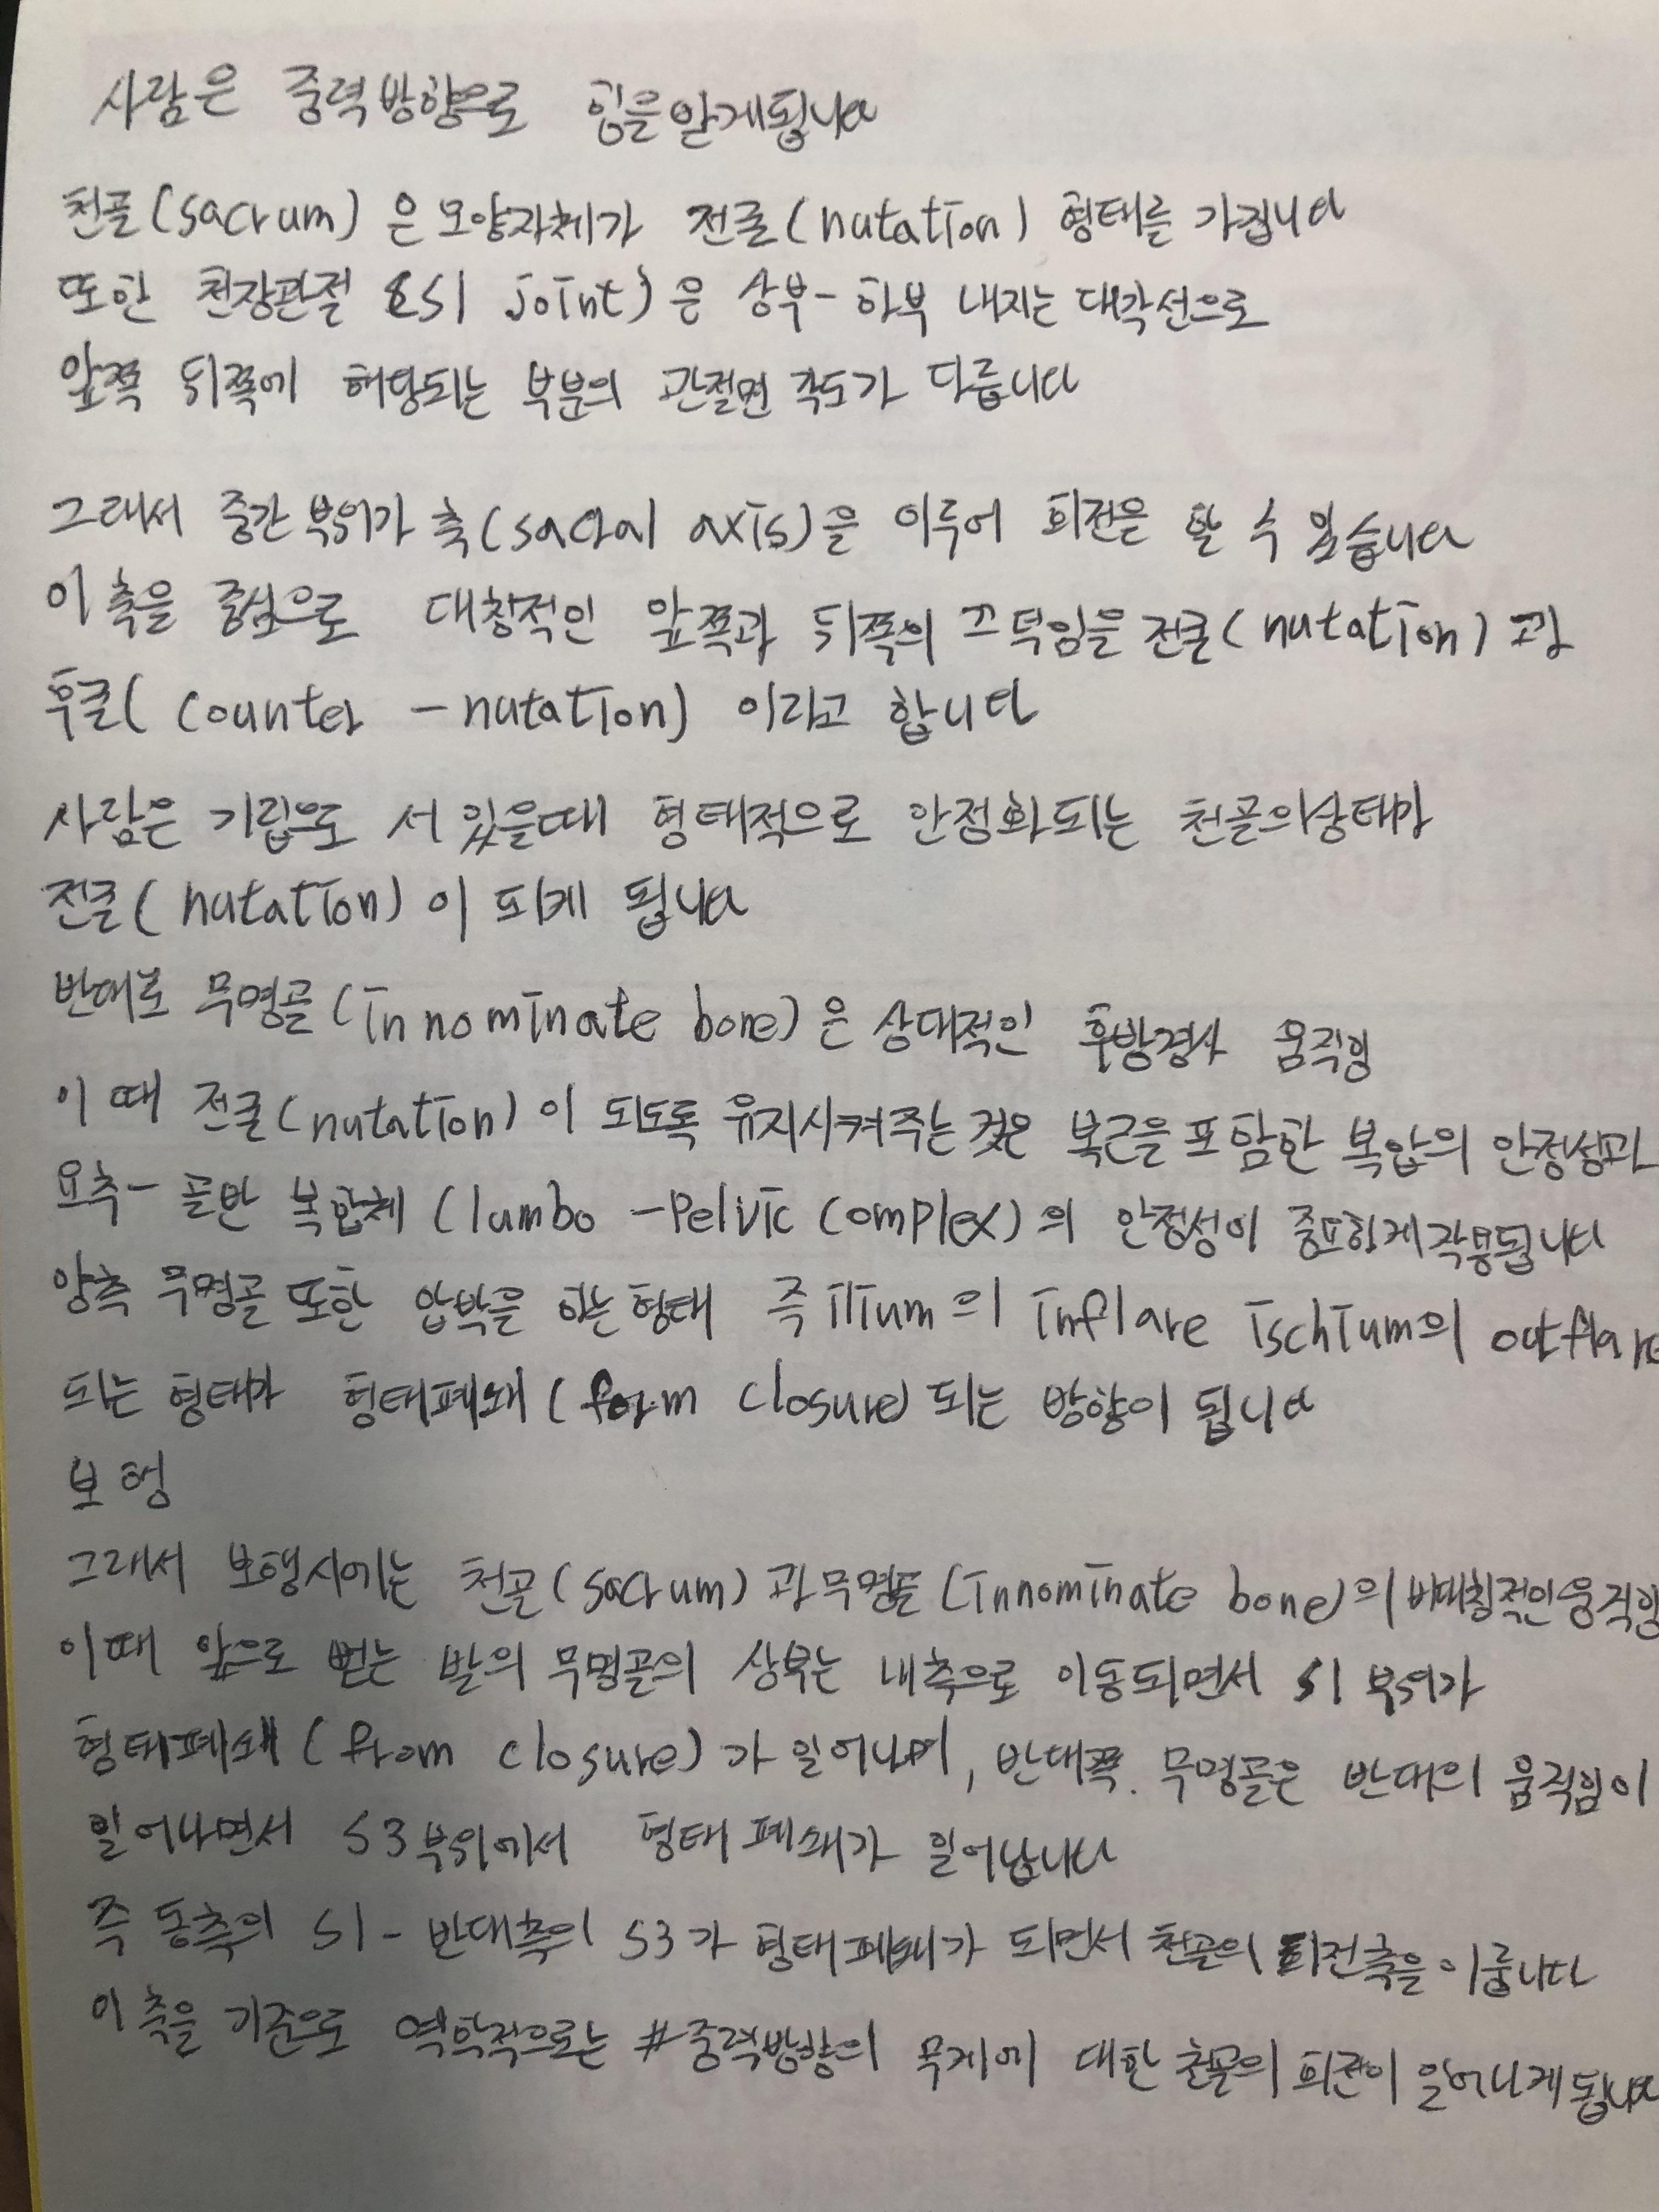 사람은 중력방향으로 힘을받게됩니다
천골(sacrum)은모양자체가 전굴(nutation) 형태를 가집니다
또한 천장관절 (SI joint)은 상부-하부 내지는 대각선으로
앞쪽 뒤쪽에 해당되는 부분의 관절면 각도가 다릅니다
그래서 중간부위가 축(sacral axis)을 이루어 회전을 할 수 있습니다
이 축을 중심으로 대칭적인 앞쪽과 뒤쪽의 끄덕임을 전굴(nutation)과
후굴(counter -nutation) 이라고 합니다
사람은 기립으로 서 있을때 형태적으로 안정화되는 천골의상태가
전굴(nutation)이 되게 됩니다
반대로 무명골(innominate bone)은 상대적인 후방경사 움직임
이 때 전굴(nutation)이 되도록 유지시켜주는 것은 복근을포함한 복압의 안정성과
요추-골반 복합체 (lumbo -Pelvic complex)의 안정성이 중요하게작용됩니다
양측 무명골또한 압박을 하는형태 즉 ilium의 inflare ischium의 outflare
되는 형태가 형태폐쇄(form closure)되는 방향이 됩니다
보행
그래서 보행시에는 천골(sacrum)과무명골(innominate bone)의 비대칭적인움직임
이때 앞으로 뻗는 발의 무명골의 상부는 내측으로 이동되면서 S1 부위가
형태폐쇄(from closure)가 일어나며, 반대쪽. 무명골은 반대의 움직임이
일어나면서 S3부위에서 형태 폐쇄가 일어납니다
즉 동측의 S1-반대측의 S3가 형태폐쇄가 되면서 천골의 회전축을이룹니다
이 축을 기준으로 역학적으로는 #중력방향의 무게에 대한 천골의 회전이 일어나게됩니다